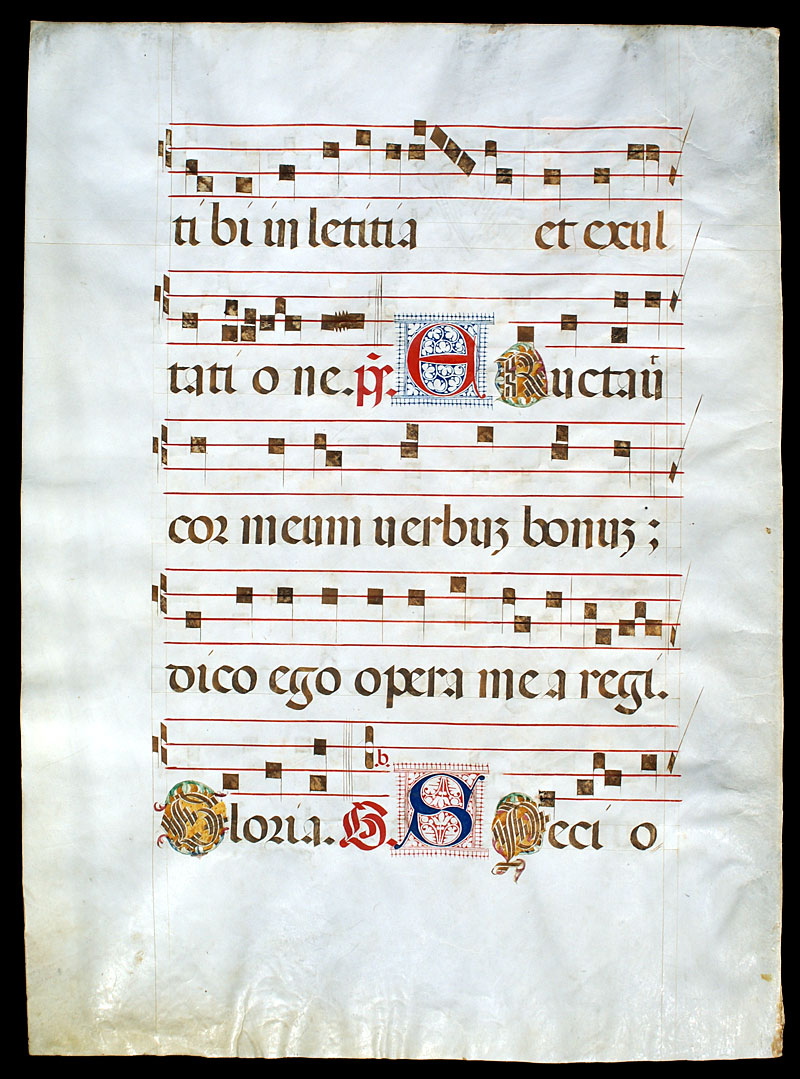 ti bi in letitia et exul
tati o ne. ps. E Ructauit
cor meum uerbuz bonuz ;
dico ego opera me a regi.
.b.
Gloria. G. S Peci o